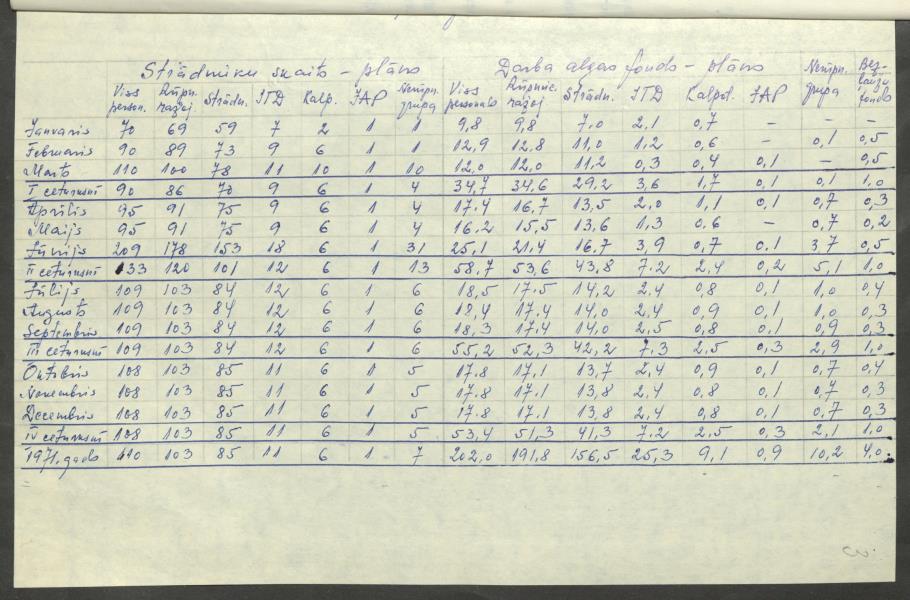 Strādnieku skaits – plāns Darba algas fonds – plāns
Viss person. Rūpn. ražoj Strādn. ITD Kalp. JAP Nerūpn. grupa Viss personāls Rūpnie. ražoj Strādn. ITD Kalpot. JAP Nerūpn. grupa fonds
Janvaris 70 69 59 7 2 1 1 9,8 9,8 7,0 2,1 0,7 – – –
Februaris 90 89 73 9 6 1 1 12,9 12,8 11,0 1,2 0,6 – 0,1 0,5
Marts 110 100 78 11 10 1 10 12,0 12,0 11,2 0,3 0,4 0,1 – 0,5
I ceturksnī 90 86 70 9 6 1 4 34,7 34,6 29,2 3,6 1,7 0,1 0,1 1,0
Aprīlis 95 91 75 9 6 1 4 17.4 16,7 13,5 2,0 1,1 0,1 0,7 0,3
Maijs 95 91 75 9 6 1 4 16.2 15,5 13,6 1,3 0,6 – 0,7 0,2
Jūnijs 209 178 153 18 6 1 31 25,1 21,4 16.7 3,9 0,7 0,1 3,7 0,5
II ceturksnī 133 120 101 12 6 1 13 58,7 53,6 43,8 7.2 2,4 0,2 5,1 1,0
Jūlijs 109 103 84 12 6 1 6 18,5 17.5 14,2 2,4 0,8 0,1 1,0 0,4
Augusts 109 103 84 12 6 1 6 18,4 17.4 14,0 2,4 0,9 0,1 1,0 0,3
Septembris 109 103 84 12 6 1 6 18,3 17.4 14,0 2,5 0,8 0,1 0,9 0,3
III ceturksnī 109 103 84 12 6 1 6 55,2 52,3 42,2 7.3 2,5 0,3 2,9 1,0
Oktobris 108 103 85 11 6 1 5 17.8 17,1 13,7 2,4 0,9 0,1 0,7 0,4
Novembris 108 103 85 11 6 1 5 17.8 17.1 13,8 2,4 0,8 0,1 0,7 0,3
Decembris 108 103 85 11 6 1 5 17.8 17.1 13,8 2,4 0,8 0,1 0,7 0,3
IV ceturksnī 108 103 85 11 6 1 5 53,4 51,3 41,3 7.2 2,5 0,3 2,1 1,0
1971. gads 110 103 85 11 6 1 7 202,0 191,8 156,5 25,3 9,1 0,9 10,2 4,0